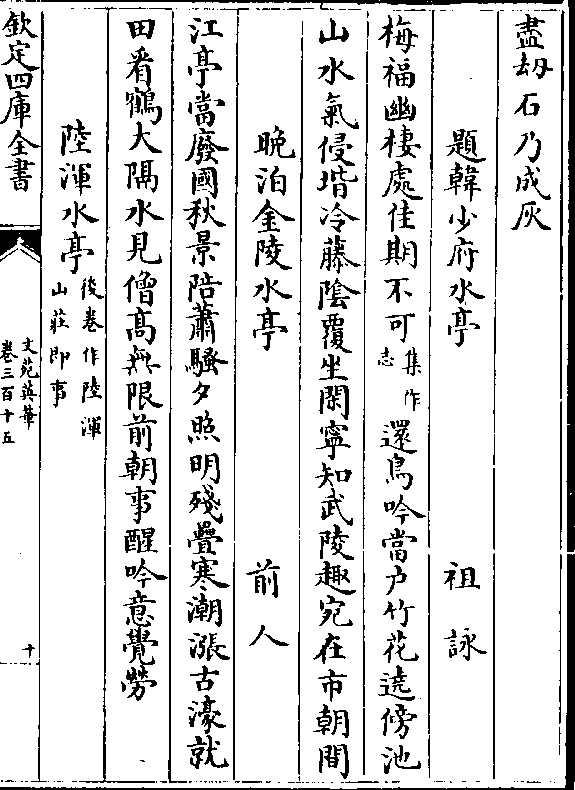 盡刼石乃成灰
題韓少府水亭　祖詠
梅福幽棲處佳期不可集作志還鳥吟當户竹花遶傍池
山水氣侵堦冷藤隂覆坐閑寧知武陵趣宛在市朝間
晩泊金陵水亭　前人
江亭當廢國秋景陪蕭騷夕照明殘疊寒潮漲古濠就
田看鶴大隔水見僧髙無限前朝事醒吟意覺勞
陸渾水亭後卷作陸渾山莊即事
欽定四庫全書
文苑英華
卷三百十五
十